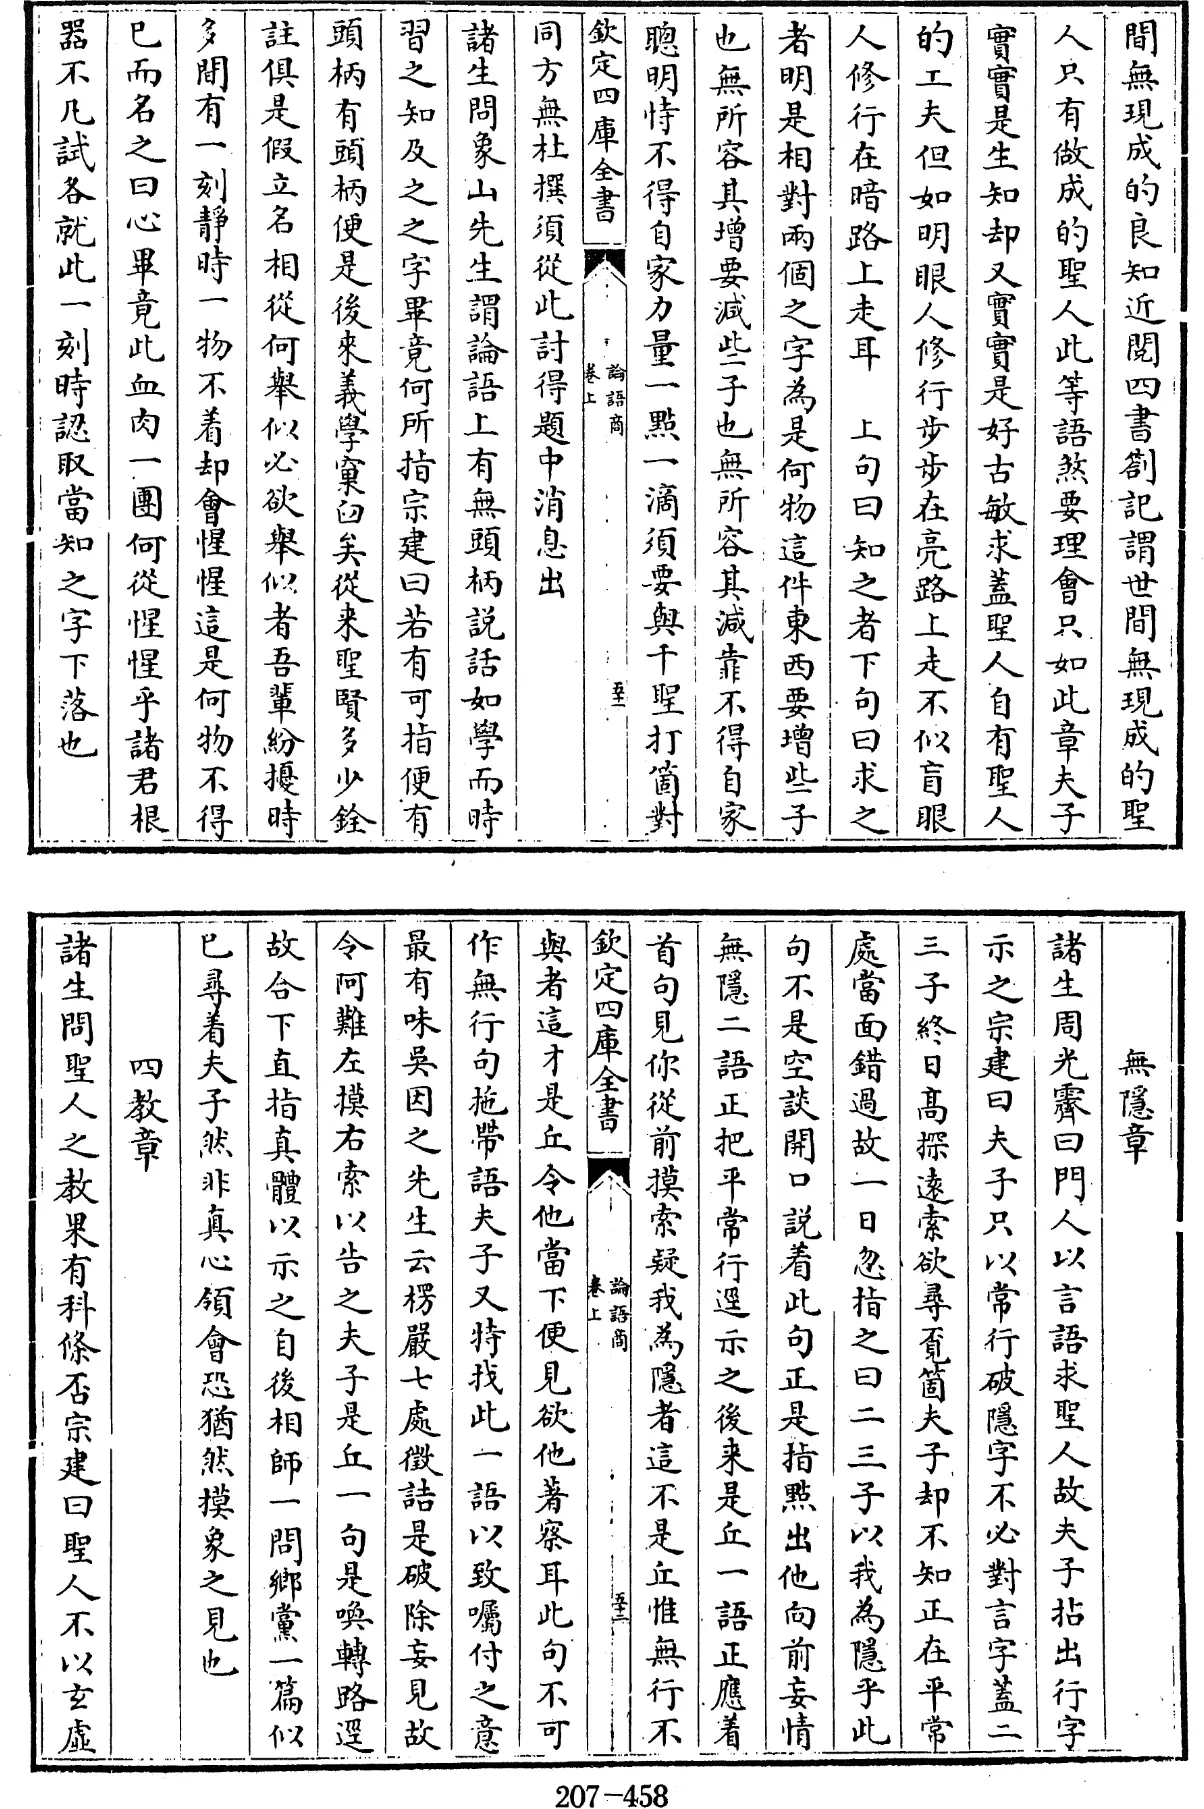 間無現成的良知近閱四書劄記謂世間無現成的聖
人只有做成的聖人此等語煞要理會只如此章夫子
實實是生知却又實實是好古敏求蓋聖人自有聖人
的工夫但如明眼人修行步步在亮路上走不似盲眼
人修行在暗路上走耳　上句曰知之者下句曰求之
者明是相對兩個之字為是何物這件東西要增些子
也無所容其增要減些子也無所容其減靠不得自家
聰明恃不得自家力量一點一滴須要與千聖打箇對
欽定四庫全書
論語商
卷上
五十二
同方無杜撰須從此討得題中消息出
諸生問象山先生謂論語上有無頭柄説話如學而時
習之知及之之字畢竟何所指宗建曰若有可指便有
頭柄有頭柄便是後來義學窠臼矣從來聖賢多少銓
註俱是假立名相從何舉似必欲舉似者吾輩紛擾時
多間有一刻靜時一物不着却會惺惺這是何物不得
已而名之曰心畢竟此血肉一團何從惺惺乎諸君根
器不凡試各就此一刻時認取當知之字下落也
無隱章
諸生周光霽曰門人以言語求聖人故夫子拈出行字
示之宗建曰夫子只以常行破隱字不必對言字蓋二
三子終日高探遠索欲尋覓箇夫子却不知正在平常
處當面錯過故一日忽指之曰二三子以我為隱乎此
句不是空談開口説着此句正是指點出他向前妄情
無隱二語正把平常行逕示之後来是丘一語正應着
首句見你從前摸索疑我為隱者這不是丘惟無行不
欽定四庫全書
論語商
卷上
五十三
與者這才是丘令他當下便見欲他著察耳此句不可
作無行句拖帶語夫子又特找此一語以致囑付之意
最有味吳因之先生云楞嚴七處徵詰是破除妄見故
令阿難左摸右索以告之夫子是丘一句是喚轉路逕
故合下直指真體以示之自後相師一問鄉黨一篇似
已尋着夫子然非真心領會恐猶然摸象之見也
四教章
諸生問聖人之教果有科條否宗建曰聖人不以玄虛
207-458